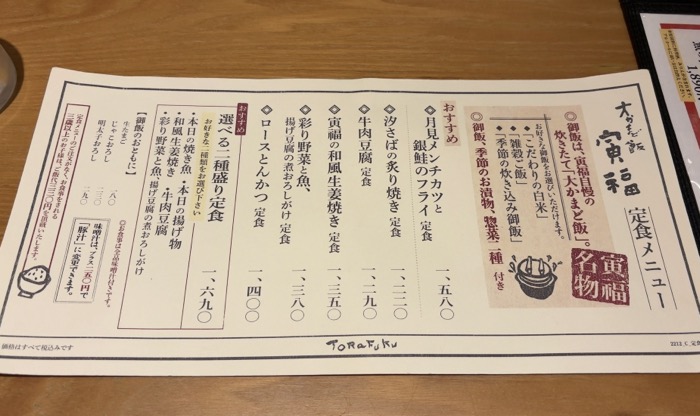 大かまど飯
寅福
定食メニュー
寅福
名物
◎御飯は、寅福自慢の
炊きたて「大かまど飯」。
お好きな御飯をお選びいただけます。
・「こだわりの白米」
・「雑穀ご飯」
・「季節の炊き込み御飯」
◎御飯、季節のお漬物、惣菜二種 付き
おすすめ
◇月見メンチカツと
銀鮭のフライ 定食
一、五八〇
◇汐さばの炙り焼き 定食
一、二二〇
◇牛肉豆腐 定食
一、二九〇
◇寅福の和風生姜焼き 定食
一、三五〇
◇彩り野菜と魚、
揚げ豆腐の煮おろしがけ 定食
一、三八〇
◇ロースとんかつ 定食
一、四〇〇
おすすめ
選べる二種盛り定食
お好きな二種類をお選び下さい
・本日の焼き魚 ・本日の揚げ物
・和風生姜焼き ・牛肉豆腐
・彩り野菜と魚、揚げ豆腐の煮おろしがけ
一、六九〇
【御飯のおともに】
生たまご
じゃこおろし
一八〇
明太子おろし
二九〇
◎お食事は全品味噌汁付きです。
味噌汁は、プラス二五〇円で
「豚汁」に変更できます。
定食メニューのご注文がなく、お食事をされる
三歳以上のお子様は、ご飯代三三〇円を頂戴いたします。
価格はすべて税込みです
TORAFUKU